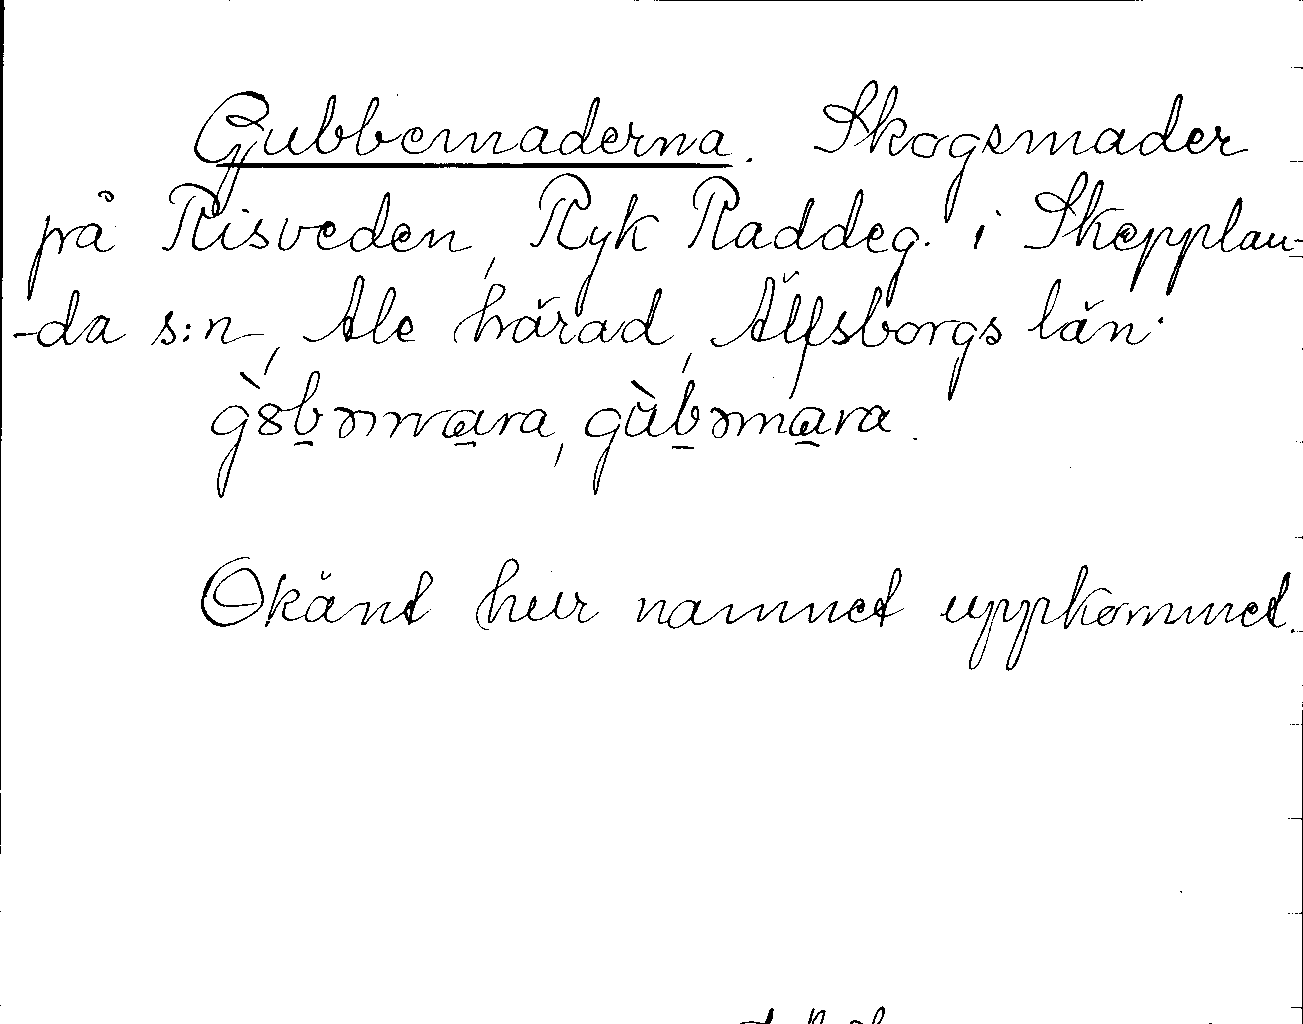 Gubbemaderna. Skogsmader
på Risveden, Ryk Raddeg. i Skepplan-
-da s:n, Ale härad, Älfsborgs län.
g̀ȣb̲əma̲ra, gùb̲əma̲ra.
Okänt hur namnet uppkommet.